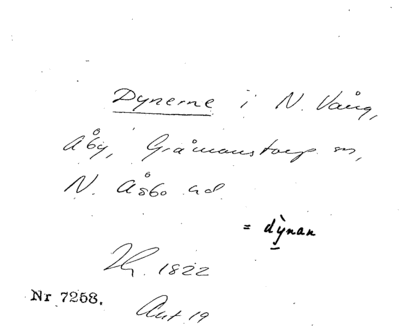 Dynerne i N. Vång,
Åby, Gråmanstorps sn,
N. Åsbo hd
= dỳ̱nan
Lh. 1822
Nr 7258.
Akt 19